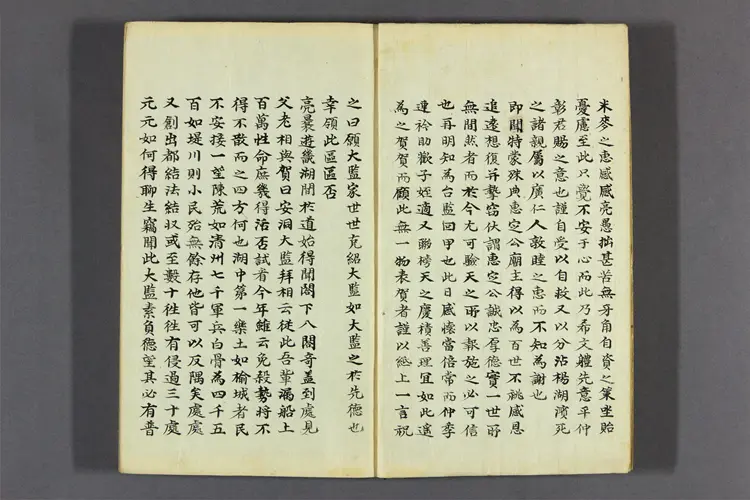 米麥之惠感感亮愚拙甚苦無身自資之策坐貽
憂慮至此只覺不安于心而此乃希文軆先意平仲
彰君賜之意也謹自受以自救又以分沾楊湖濱死
之諸親属以廣仁人敦睦之惠而不知為謝也
即聞特蒙殊典惠定公廟主得以為百世不祧感恩
追遠想復弄摯窃伏謂惠定公誠忠厚德實一世所
無聞然者而於今尤可驗天之所以報施之必可信
也再明知為台監回甲也此日感懷當倍常而仲季
連衿助歡子姪適又聯榜天之慶積善理宜如此遙
為之賀賀而顧此無一物表賀者謹以紙上一言祝
之曰願大監家世世克紹大監如大監之於先德也
幸領此區區否
亮曩遊畿湖間於道始得聞閤下八閤奇盖到處見
父老相與賀曰安洞大監拜相云從此吾輩漏船上
百萬性命庶幾得活否試看今年雖云免殺勢將不
得不散而之四方何也湖中第一樂土如榆城者民
不安接一望陳荒如清州七千軍兵白骨為四千五
百如堤川則小民殆無餘存他皆可以反隅矣處處
又創出都結法結収或至數十徃徃有侵過三十處
元元如何得聊生竊聞此大監素負德望其必有普